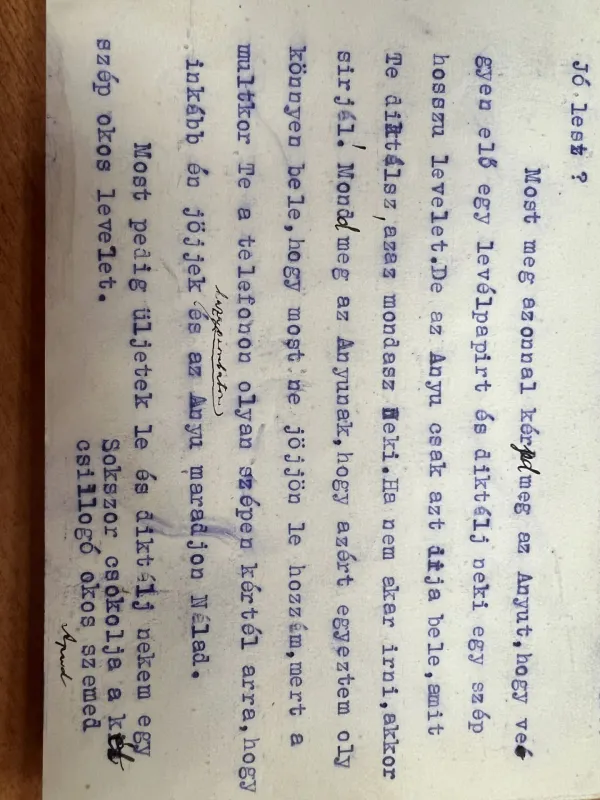 Jó lesz ?
Most meg azonnal kérd meg az Anyut,hogy ve-
gyen elő egy levélpapirt és diktélj neki egy szép
hosszu levelet.De az Anyu csak azt irja bele,amit
Te diktálsz,azaz mondasz Neki.Ha nem akar irni,akkor
sirjél! Mondd meg az Anyunak,hogy azért egyeztem oly
könnyen bele,hogy most ne jöjjön le hozzám,mert a
multkor Te a telefonon olyan szépen kértél arra,hogy
inkább én jöjjek és az Anyu maradjon Nálad.
Most pedig üljetek le és diktélj nekem egy
szép okos levelet.
Sokszor csókolja a két
csillogó okos szemed
Apud